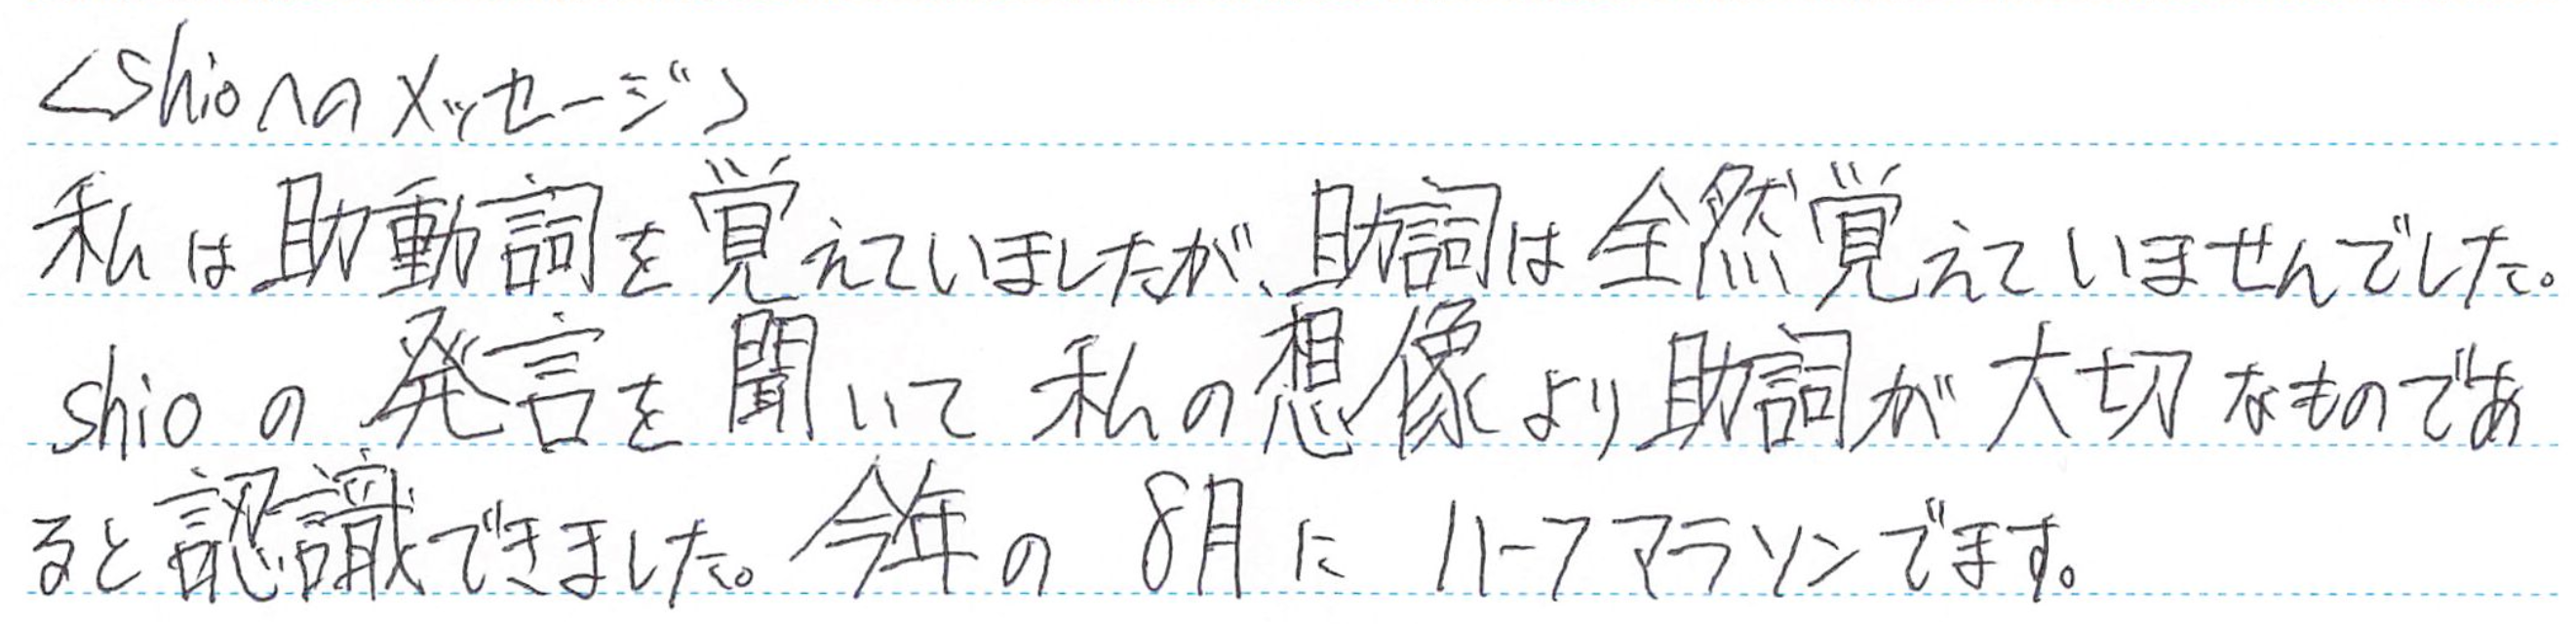 <shioへのメッセージ>
私は助動詞を覚えていましたが、助詞は全然覚えていませんでした。
shioの発言を聞いて私の想像より助詞が大切なものであ
ると認識できました。今年の8月にハーフマラソンでます。